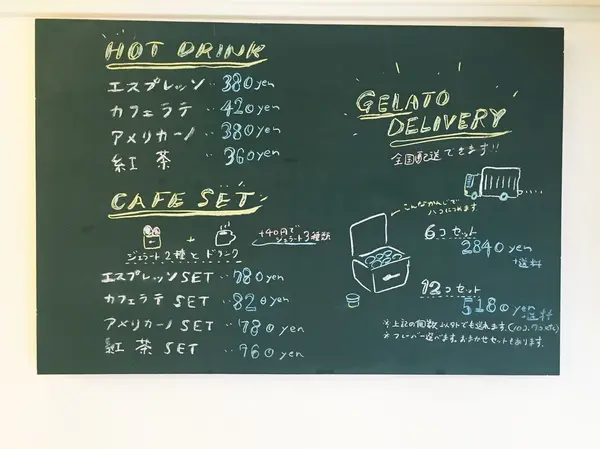 HOT DRINK
エスプレッソ ‥380yen
カフェラテ ‥420yen
アメリカーノ ‥380yen
紅茶 ‥360yen
CAFE SET
+
+40円でジェラート3種類
ジェラート2種とドリンク
エスプレッソSET ‥780yen
カフェラテSET ‥820yen
アメリカーノSET ‥780yen
紅茶SET ‥760yen
GELATO
DELIVERY
全国配送できます!!
こんなかんじで
ハコにつめます
6コセット
2840yen
+送料
12コセット
5180yen
+送料
※上記の個数以外でも送れます。
※フレーバー選べます。おまかせセットもあります。